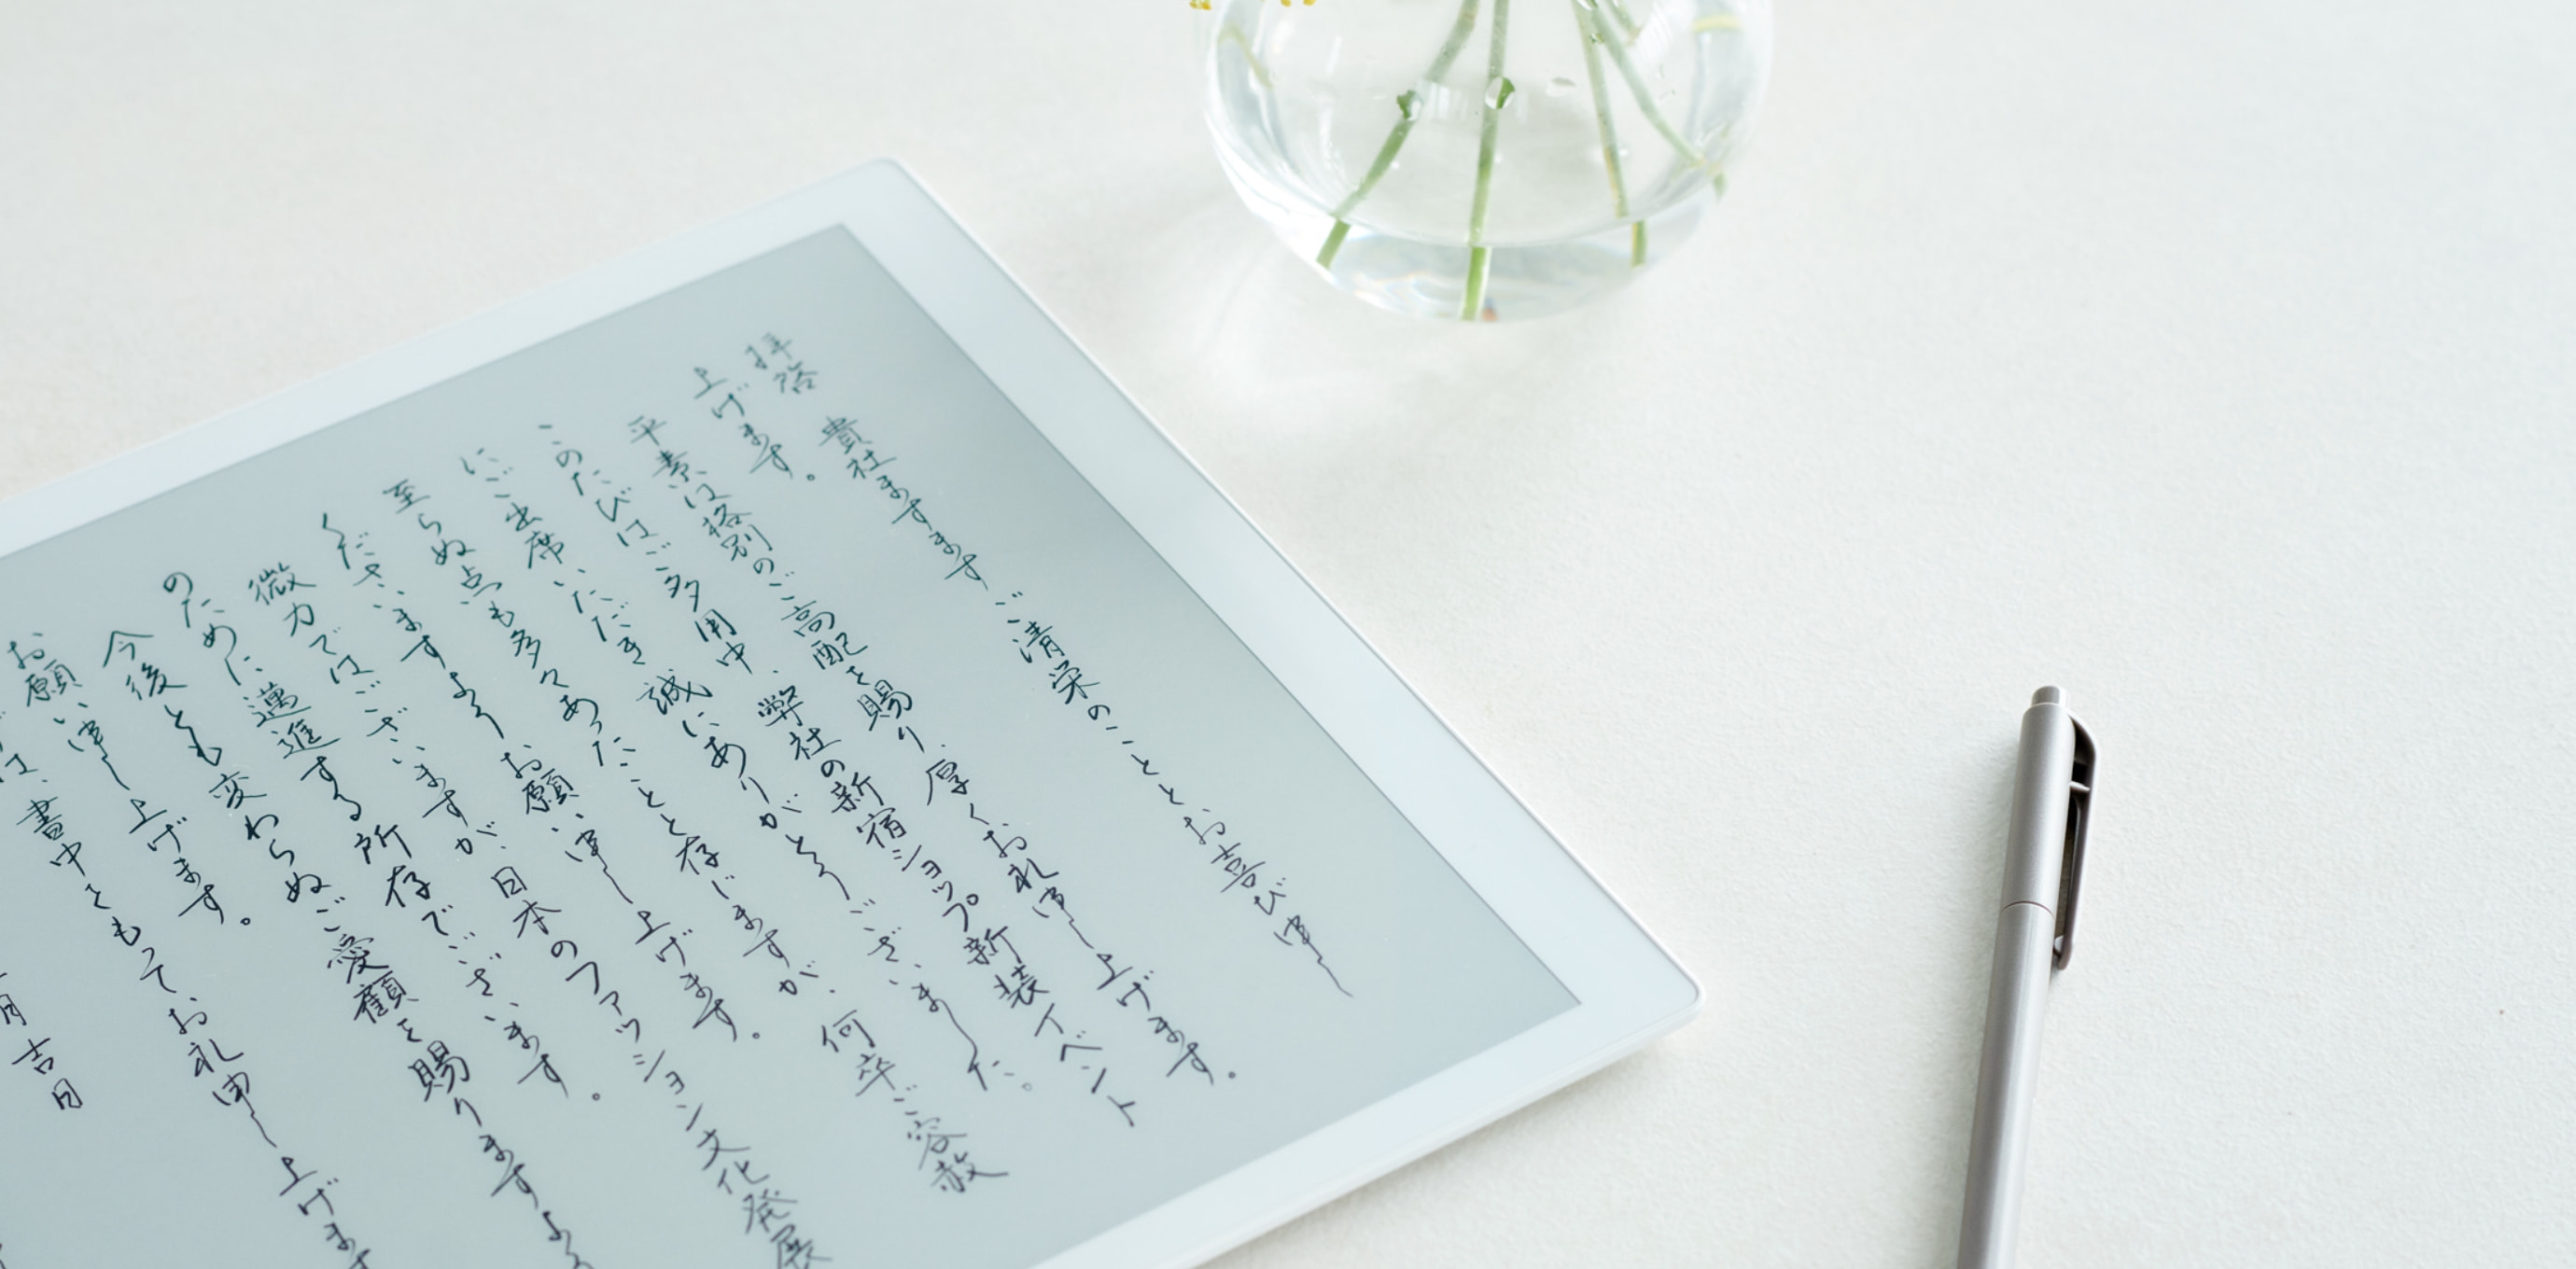 拝啓 貴社ますますご清栄のこととお喜び申し
上げます。
平素は格別のご高配を賜り、厚くお礼申し上げます。
このたびはご多用中、弊社の新宿ショップ新装イベント
にご出席いただき誠にありがとうございました。
至らぬ点も多々あったことと存じますが、何卒ご容赦
くださいますようお願い申し上げます。
微力ではございますが、日本のファッション文化発展
のために邁進する所存でございます。
今後とも変わらぬご愛顧を賜りますよう
お願い申し上げます。
は、書中をもってお礼申し上げます
月吉日